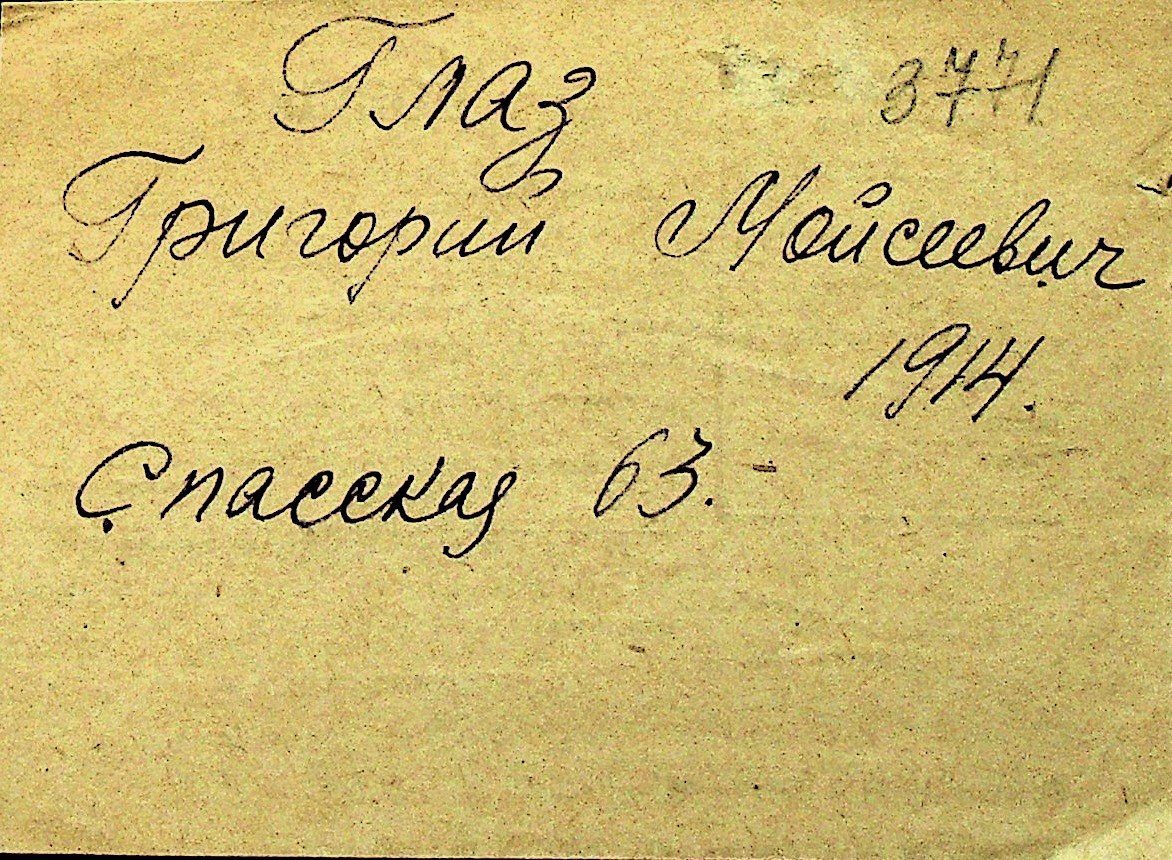 Глаз 3771
Григорий Мойсеевич
1914.
Спасская 63.-